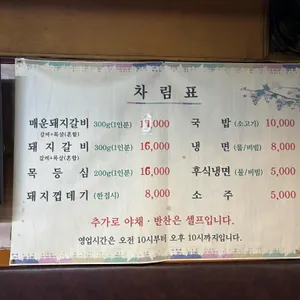 차 림 표
매운돼지갈비 300g(1인분) 11,000
갈비+목살(혼합)
돼 지 갈 비 300g(1인분) 16,000
갈비+목살(혼합)
목 등 심 200g(1인분) 16,000
돼지껍데기 (한접시) 8,000
국 밥 (소고기) 10,000
냉 면 (물/비빔) 8,000
후식냉면 (물/비빔) 5,000
소 주 5,000
추가로 야채·반찬은 셀프입니다.
영업시간은 오전 10시부터 오후 10시까지입니다.